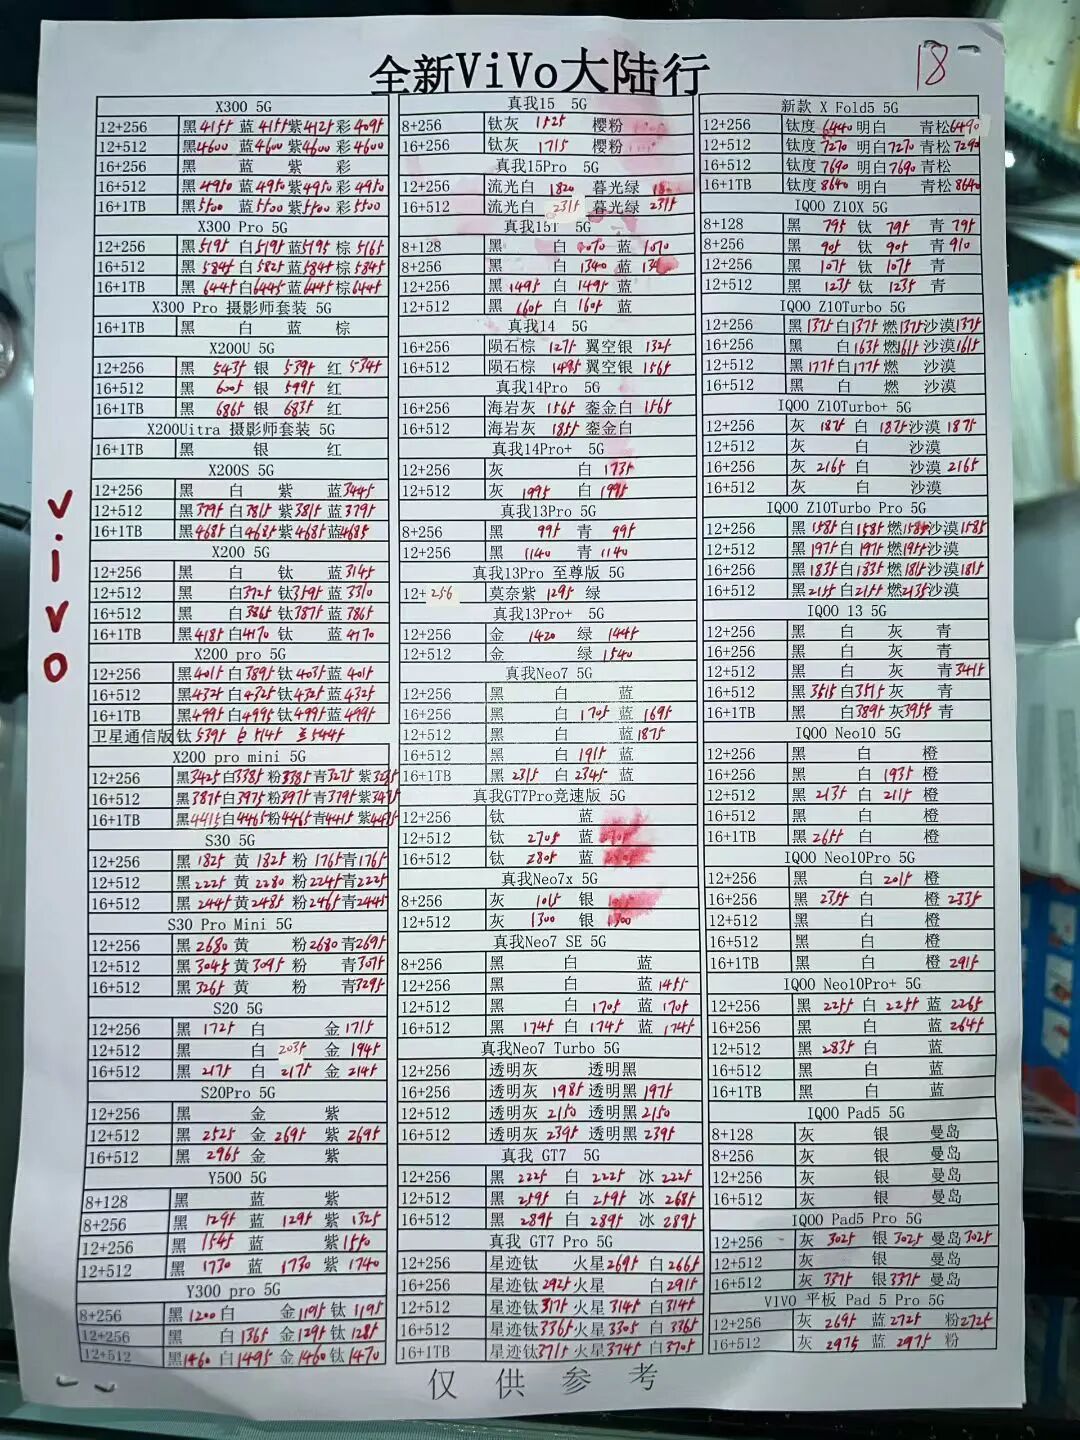 全新ViVo大陆行
18
vivo
X300 5G
12+256 黑4155 蓝4155 紫4125 彩4095
12+512 黑4600 蓝4600 紫4600 彩4600
16+256 黑 蓝 紫 彩
16+512 黑4950 蓝4950 紫4950 彩4950
16+1TB 黑5500 蓝5500 紫5500 彩5500
X300 Pro 5G
12+256 黑5195 白5195 蓝5195 棕5165
16+512 黑5845 白5825 蓝5845 棕5845
16+1TB 黑6445 白6445 蓝6445 棕6445
X300 Pro 摄影师套装 5G
16+1TB 黑 白 蓝 棕
X200U 5G
12+256 黑 5435 银 5395 红 5345
16+512 黑 6005 银 5995 红
16+1TB 黑 6865 银 6835 红
X200Uitra 摄影师套装 5G
16+1TB 黑 银 红
X200S 5G
12+256 黑 白 紫 蓝3445
12+512 黑3795 白3815 紫3815 蓝3795
16+1TB 黑4685 白4685 紫4685 蓝4685
X200 5G
12+256 黑 白 钛 蓝3145
12+512 黑 白3725 钛3595 蓝3310
16+512 黑 白3865 钛3875 蓝3865
16+1TB 黑4185 白4170 钛 蓝4170
X200 pro 5G
12+256 黑4015 白3895 钛4035 蓝4015
16+512 黑4325 白4325 钛4325 蓝4325
16+1TB 黑4995 白4995 钛4995 蓝4995
卫星通信版 钛 5395 白 5145 蓝5445
X200 pro mini 5G
12+256 黑3425 白3385 粉3385 青3275 紫3235
16+512 黑3875 白3975 粉3975 青3795 紫3475
16+1TB 黑4415 白4465 粉4465 青4415 紫4435
S30 5G
12+256 黑1825 黄1825 粉1765 青1765
12+512 黑2225 黄2280 粉2245 青2225
16+512 黑2445 黄2485 粉2465 青2445
S30 Pro Mini 5G
12+256 黑2680 黄 粉2680 青2695
12+512 黑3045 黄3095 粉 青3075
16+512 黑3265 黄 粉 青3295
S20 5G
12+256 黑 1725 白 金 1715
12+512 黑 白 2035 金 1945
16+512 黑 2175 白 2175 金 2145
S20Pro 5G
12+256 黑 金 紫
12+512 黑 2525 金 2695 紫 2695
16+512 黑 2965 金 紫
Y500 5G
8+128 黑 蓝 紫
8+256 黑 1295 蓝 1295 紫 1325
12+256 黑 1545 蓝 紫1550
12+512 黑 1730 蓝 1730 紫 1740
Y300 pro 5G
8+256 黑1200 白 金1195 钛1195
12+256 黑 白1365 金1295 钛1285
12+512 黑1460 白1495 金1460 钛1470
真我15 5G
8+256 钛灰 1525 樱粉
16+256 钛灰 1715 樱粉
真我15Pro 5G
12+256 流光白 1820 暮光绿
16+512 流光白 2315 暮光绿 2315
真我15T 5G
8+128 黑 白 1070 蓝 1070
8+256 黑 白 1340 蓝
12+256 黑1495 白1495 蓝
12+512 黑 1605 白 1605 蓝
真我14 5G
16+256 陨石棕 1275 翼空银 1325
16+512 陨石棕 1485 翼空银 1565
真我14Pro 5G
16+256 海岩灰 1565 銮金白 1565
16+512 海岩灰 1855 銮金白
真我14Pro+ 5G
12+256 灰 白 1735
12+512 灰 1995 白 1995
真我13Pro 5G
8+256 黑 995 青 995
12+256 黑 1140 青 1140
真我13Pro 至尊版 5G
12+256 莫奈紫 1295 绿
真我13Pro+ 5G
12+256 金 1420 绿 1445
12+512 金 绿 1540
真我Neo7 5G
12+256 黑 白 蓝
16+256 黑 白 1705 蓝 1695
12+512 黑 白 蓝1875
16+512 黑 白 1915 蓝
16+1TB 黑 2315 白 2345 蓝
真我GT7Pro竞速版 5G
12+256 钛 蓝
12+512 钛 2705 蓝
16+512 钛 2805 蓝
真我Neo7x 5G
8+256 灰 1015 银
12+512 灰 1300 银 1300
真我Neo7 SE 5G
8+256 黑 白 蓝
12+256 黑 白 蓝1455
12+512 黑 白 1705 蓝 1705
16+512 黑 1745 白 1745 蓝 1745
真我Neo7 Turbo 5G
12+256 透明灰 透明黑
16+256 透明灰 1985 透明黑 1975
12+512 透明灰 2150 透明黑 2150
16+512 透明灰 2395 透明黑 2395
真我 GT7 5G
12+256 黑 2225 白 2225 冰 2225
12+512 黑 2595 白 2595 冰 2685
16+512 黑 2895 白 2895 冰 2895
真我 GT7 Pro 5G
12+256 星迹钛 火星2695 白2665
16+256 星迹钛2925 火星 白2915
12+512 星迹钛3175 火星3145 白3145
16+512 星迹钛3365 火星3305 白3365
16+1TB 星迹钛3715 火星3745 白3705
新款 X Fold5 5G
12+256 钛度 6440 明白 青松6490
12+512 钛度 7270 明白7270 青松7290
16+512 钛度 7690 明白7690 青松
16+1TB 钛度 8640 明白 青松8640
IQOO Z10X 5G
8+128 黑 795 钛 795 青 795
8+256 黑 905 钛 905 青 910
12+256 黑 1075 钛 1075 青
12+512 黑 1235 钛 1235 青
IQOO Z10Turbo 5G
12+256 黑1375 白1375 燃1375 沙漠1375
16+256 黑 白1635 燃1615 沙漠1615
12+512 黑1775 白1775 燃 沙漠
16+512 黑 白 燃 沙漠
IQOO Z10Turbo+ 5G
12+256 灰 1875 白 1875 沙漠 1875
12+512 灰 白 沙漠
16+256 灰 2165 白 沙漠 2165
16+512 灰 白 沙漠
IQOO Z10Turbo Pro 5G
12+256 黑1585 白1585 燃1585 沙漠1585
12+512 黑1975 白1975 燃1955 沙漠
16+256 黑1835 白1835 燃1815 沙漠1815
16+512 黑2155 白2155 燃2135 沙漠
IQOO 13 5G
12+256 黑 白 灰 青
16+256 黑 白 灰 青
12+512 黑 白 灰 青3415
16+512 黑3515 白3575 灰 青
16+1TB 黑 白3895 灰3955 青
IQOO Neo10 5G
12+256 黑 白 橙
16+256 黑 白 1935 橙
12+512 黑 2135 白 2115 橙
16+512 黑 白 橙
16+1TB 黑2655 白 橙
IQOO Neo10Pro 5G
12+256 黑 白 2015 橙
16+256 黑 2355 白 橙 2335
12+512 黑 白 橙
16+512 黑 白 橙
16+1TB 黑 白 橙 2915
IQOO Neo10Pro+ 5G
12+256 黑 2255 白 2255 蓝 2265
16+256 黑 白 蓝 2645
12+512 黑 2835 白 蓝
16+512 黑 白 蓝
16+1TB 黑 白 蓝
IQOO Pad5 5G
8+128 灰 银 曼岛
8+256 灰 银 曼岛
12+256 灰 银 曼岛
16+512 灰 银 曼岛
IQOO Pad5 Pro 5G
12+256 灰 3025 银 3025 曼岛3025
12+512 灰 银 曼岛
16+512 灰 3375 银3375 曼岛
VIVO 平板 Pad 5 Pro 5G
12+256 灰 2695 蓝 2725 粉2725
16+512 灰 2975 蓝 2975 粉
仅供参考